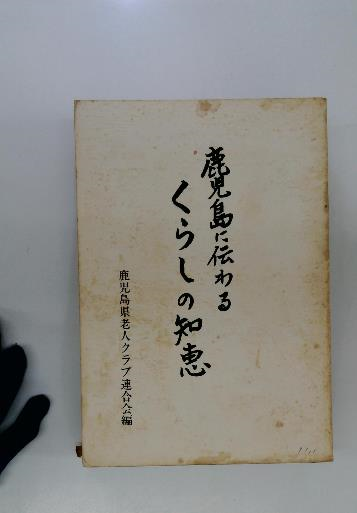 鹿児島に伝わる
くらしの知恵
鹿児島県老人クラブ連合会編